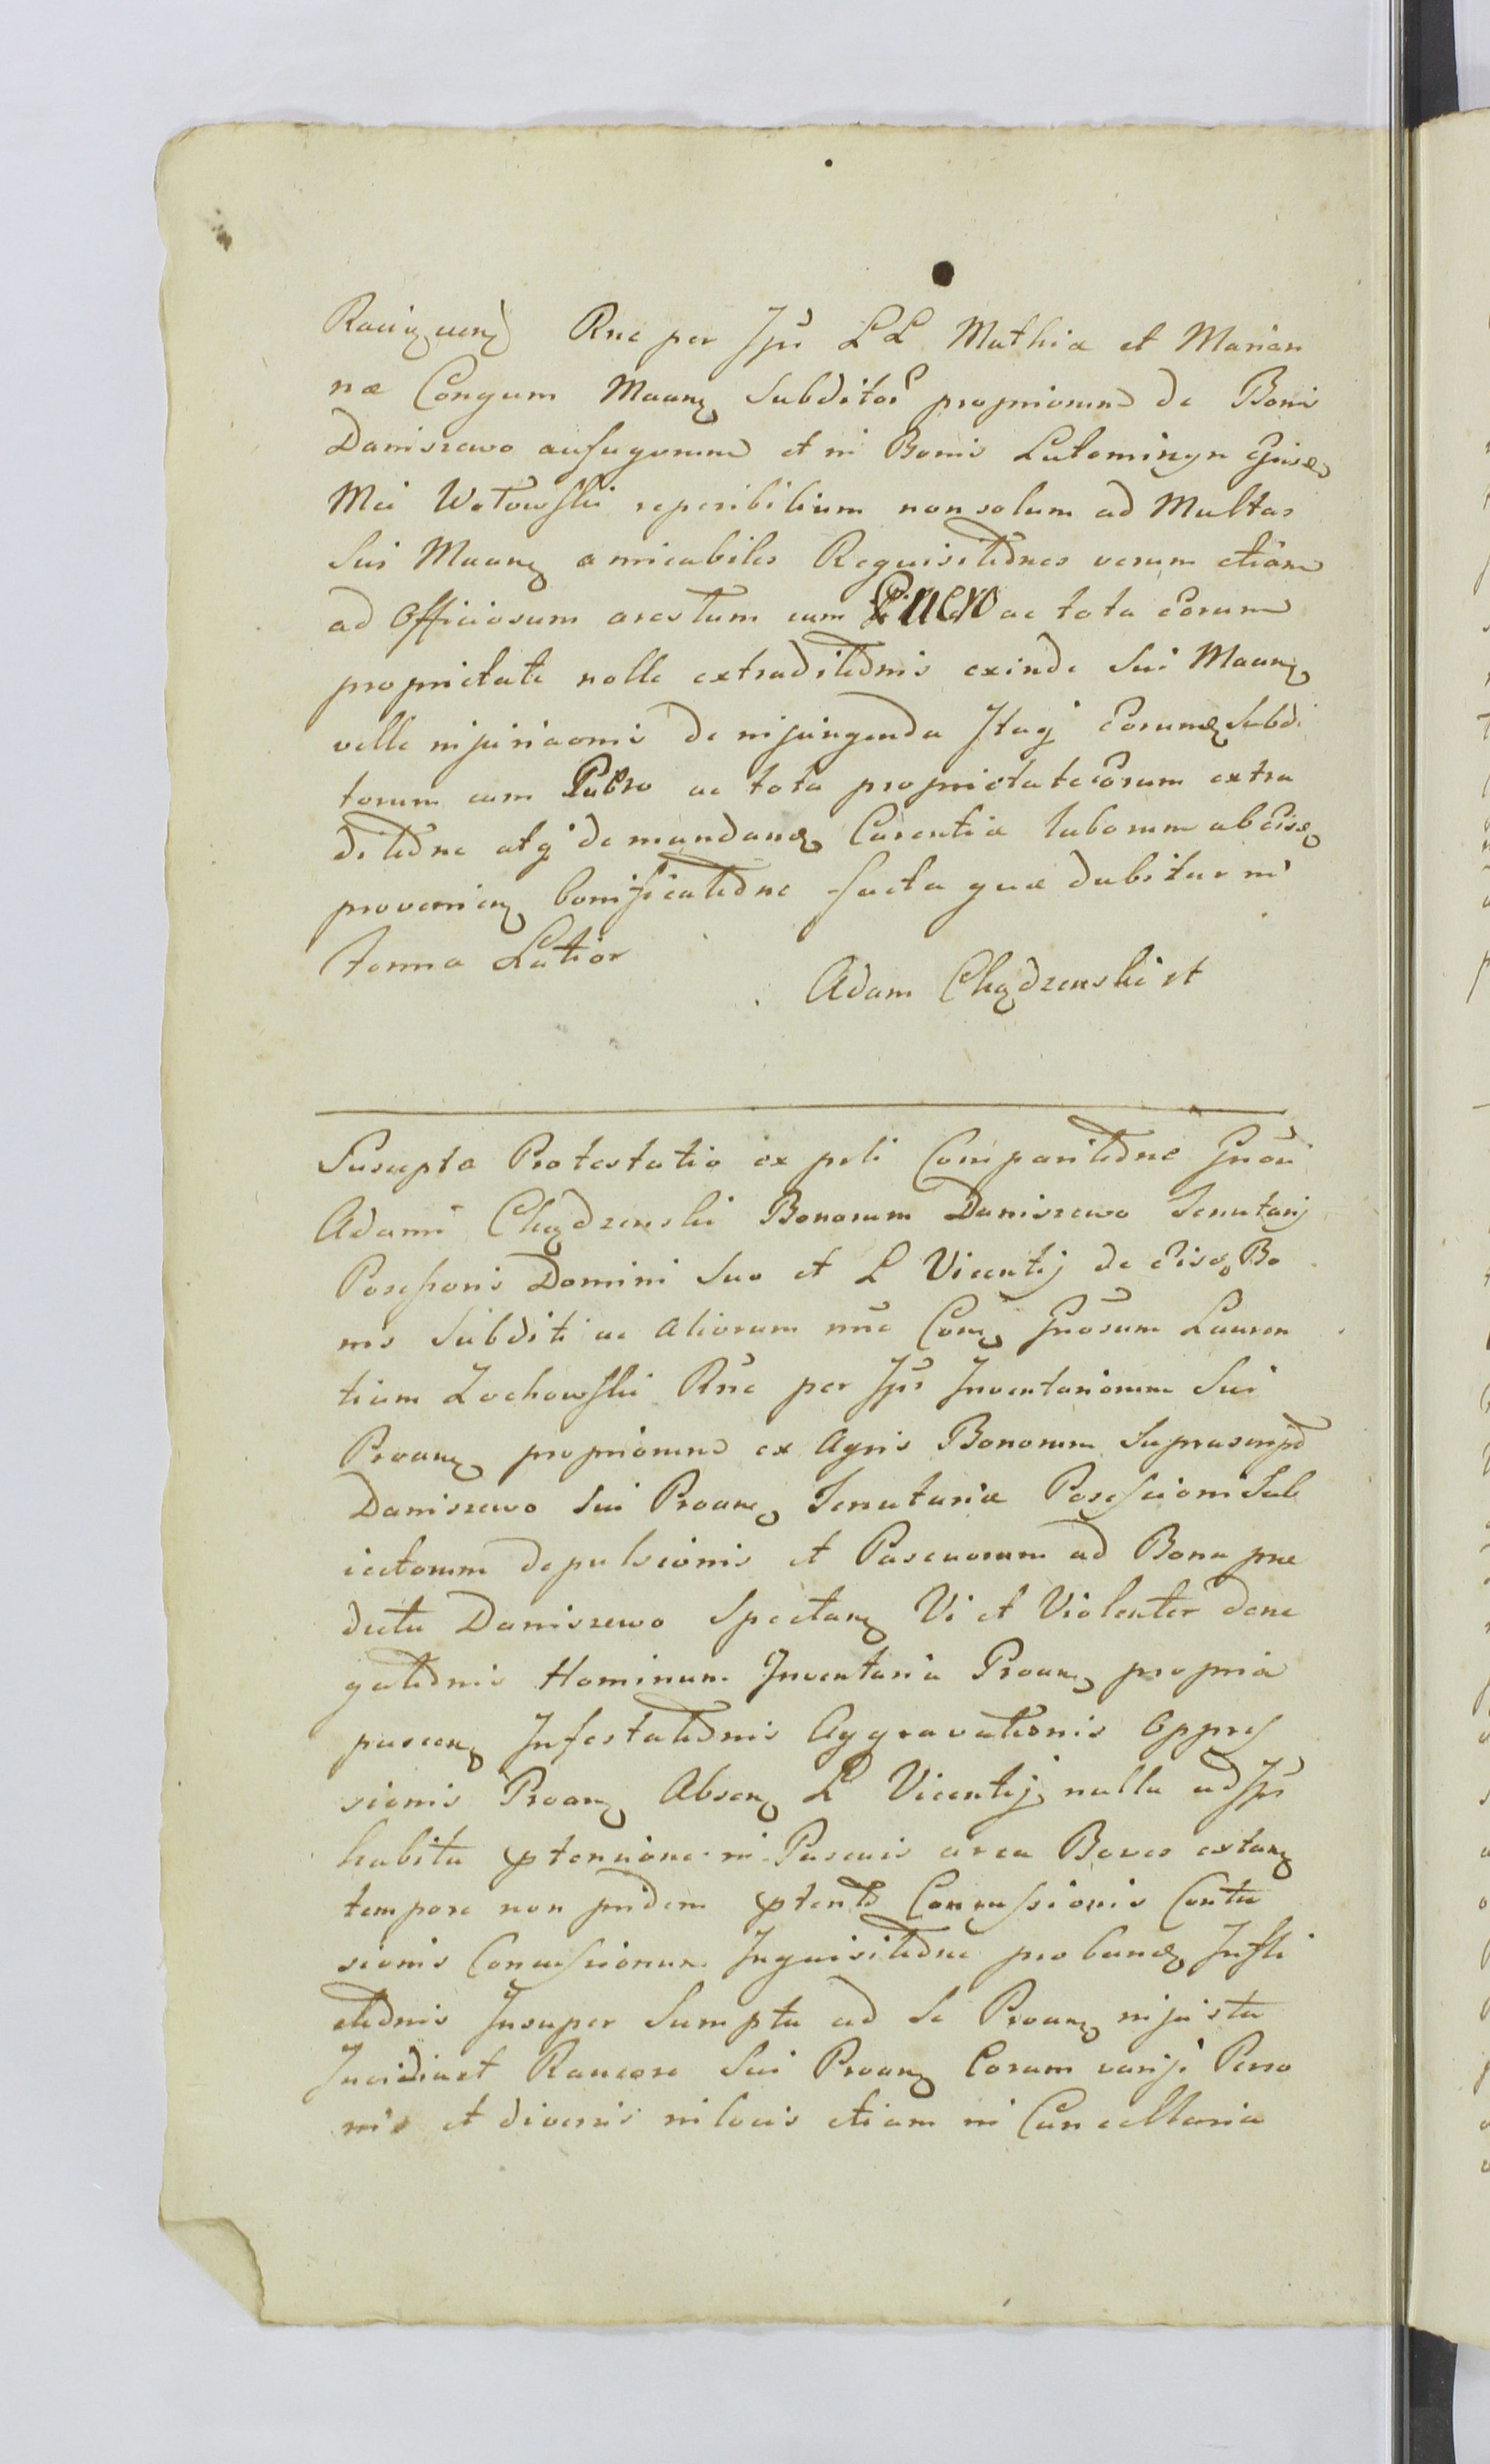 Raciązven Rne per Ips LL Mathiæ et Marian
næ Congum Maanz Subditor propriorum de Bonis
Daniszewo aufugorum et in Bonis Lutomirzyn Ejusd
Mci Wotowski reperibilium non solum ad Multas
Sui Maanz amicabiles Requisitiones verum etiam
ad Officiosum arestum cum Puero ac tota Eorum
proprietate nolle extraditionis exinde Sui Maanz
velle injuriaonis de injungenda Itaq Eorumd Subdi
torum cum Puero ac tota proprietate Eorum extra
ditione atq demandand Carentiæ laborum ab Eisd
provenien bonificatione facta quæ dabitur in
forma Latior
Adam Chądzenski st
Suscepta Protestatio ex psli Comparitione Gnosi
Adami Chądzenski Bonorum Daniszewo Tenutarij
Possessoris Domini Suo et L Vicentij de Eisd Bo
nis Subditi ac Aliorum nne Con Gnosum Lauren
tium Zochowski Rne per Ips Inventariorum Sui
Proanz propriorum ex Agris Bonorum Suprascrip
Daniszewo Sui Proanz Tenutariæ Possessioni Sub
iectorum depulsionis et Pascuorum ad Bona præ
dicta Daniszewo Spectanz Vi et Violenter dene
gationis Hominum Inventaria Proanz propria
pascenz Infestationis Aggravationis Oppres
sionis Proanz Absenz L Vicentij nulla ad Ips
habita ptensione in Pascuis circa Boves extanz
tempore non pridem ptento Concussionis Contu
sionis Concussionum Inquisitione proband Infli
ctionis Insuper Sumpta ad Se Proanz injusta
Invidia et Rancore Sui Proanz Coram varijs Perso
nis et diversis in locis etiam in Cancellaria